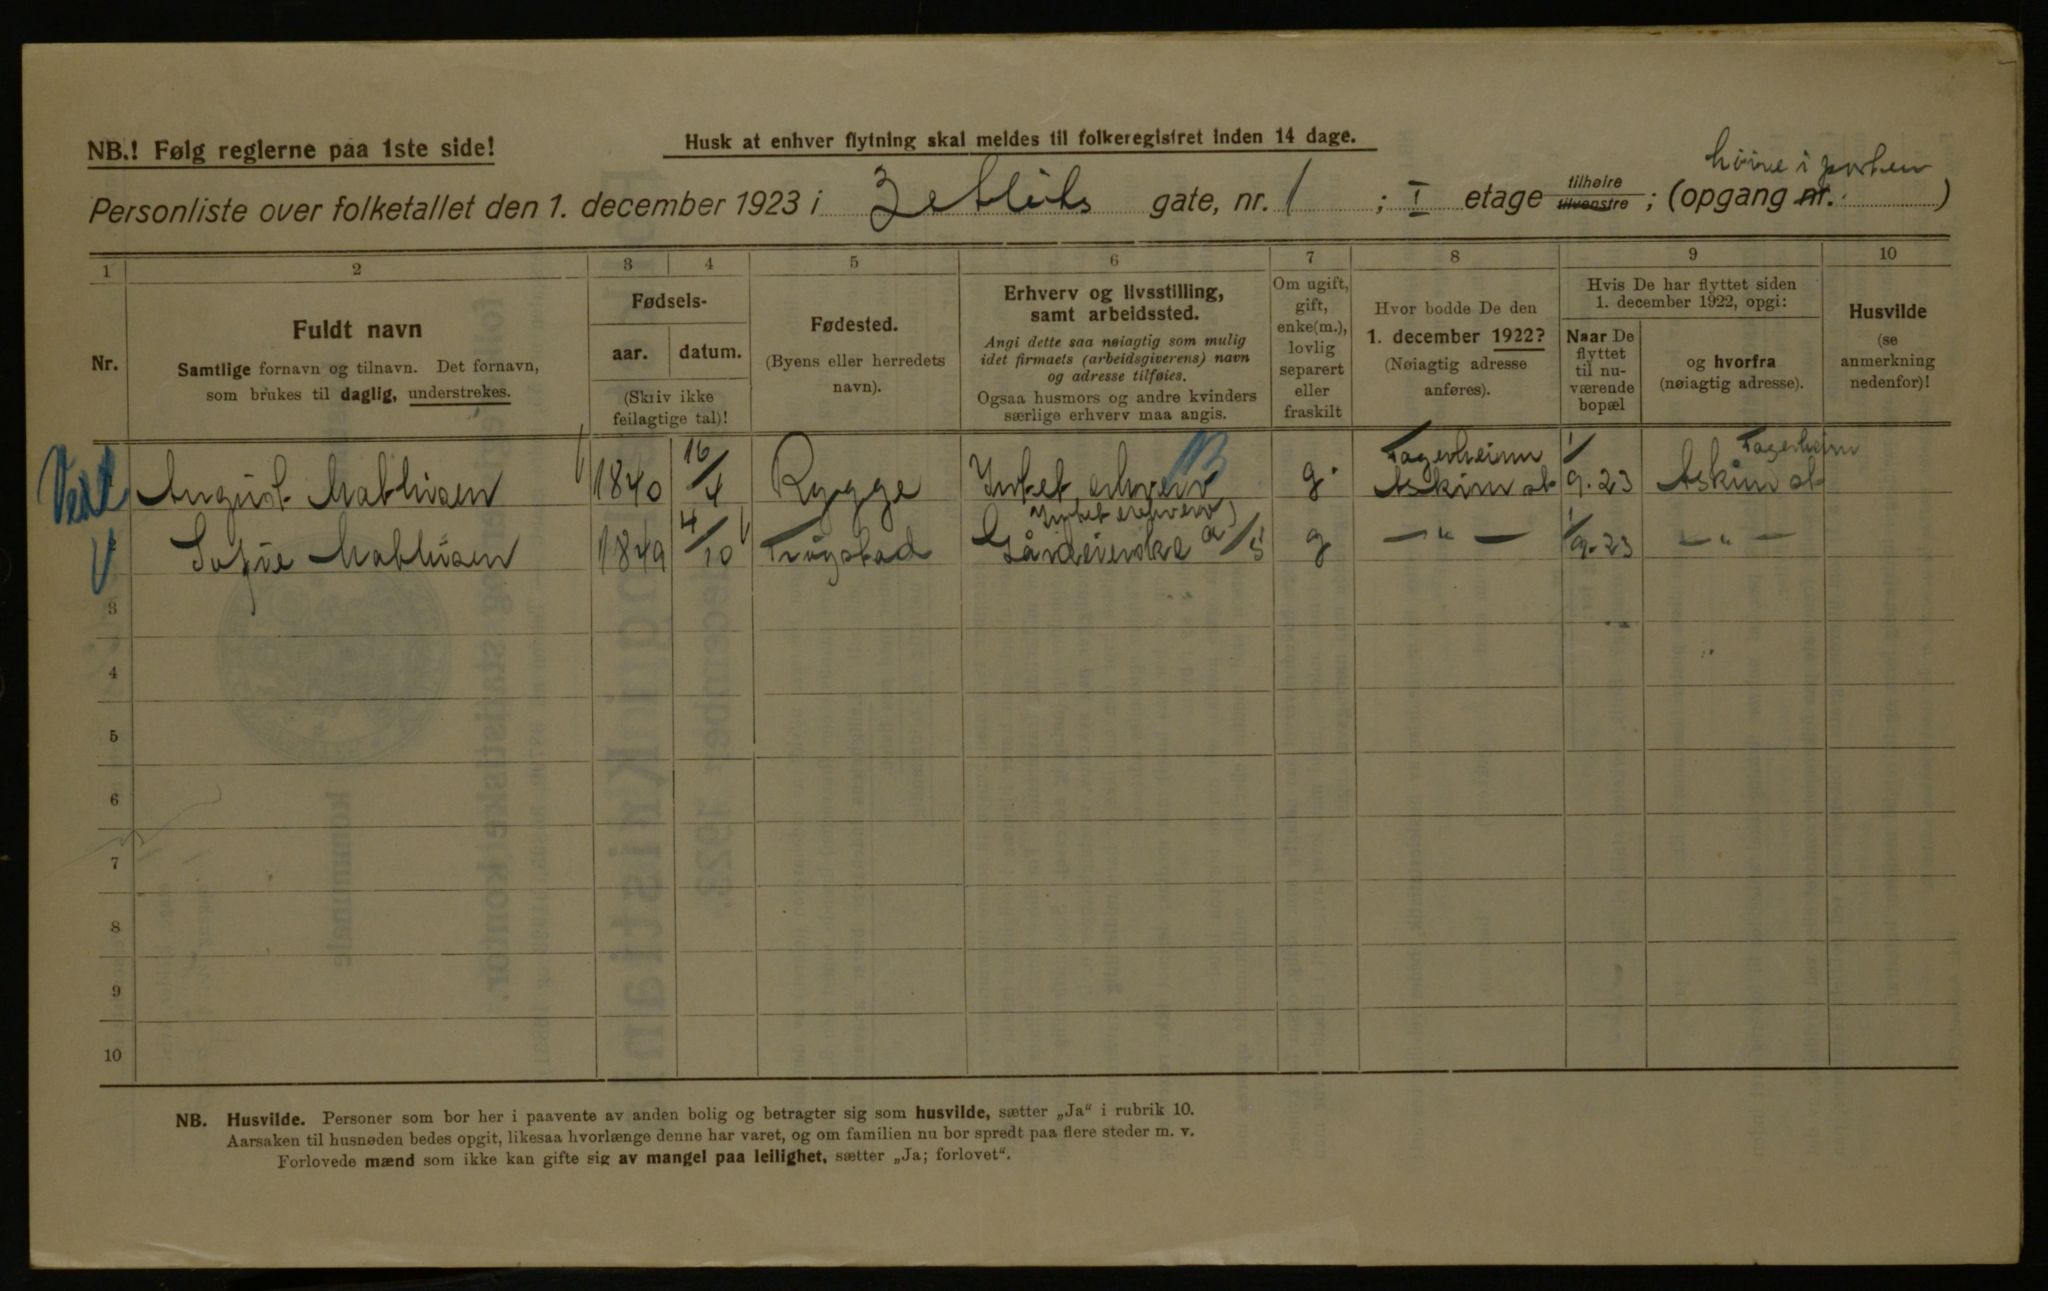 NB.! Følg reglerne paa 1ste side!
Husk at enhver flytning skal meldes til folkeregistret inden 14 dage.
høire i porten
Personliste over folketallet den 1. december 1923 i Zetlits gate, nr. 1 ; I etage tilhøire tilvenstre ; (opgang nr. )
1 2 3 4 5 6 7 8 9 10
Nr.
Fuldt navn
Samtlige fornavn og tilnavn. Det fornavn,
som brukes til daglig, understrekes.
Fødsels-
aar. datum.
(Skriv ikke
feilagtige tal)!
Fødested.
(Byens eller herredets
navn).
Erhverv og livsstilling,
samt arbeidssted.
Angi dette saa nøiagtig som mulig
idet firmaets (arbeidsgiverens) navn
og adresse tilføies.
Ogsaa husmors og andre kvinders
særlige erhverv maa angis.
Om ugift,
gift,
enke(m.),
lovlig
separert
eller
fraskilt
Hvor bodde De den
1. december 1922?
(Nøiagtig adresse
anføres).
Hvis De har flyttet siden
1. december 1922, opgi:
Naar De
flyttet
til nu-
værende
bopæl
og hvorfra
(nøiagtig adresse).
Husvilde
(se
anmerkning
nedenfor)!
August Mathisen 1840 16/4 Rygge Intet erhverv g. Fagerheim Askim st 1/9.23 Fagerheim Askim st
Sofie Mathisen 1849 4/10 Trøgstad Intet erhverv Gårdeierske g 〃 1/9.23 〃
3
4
5
6
7
8
9
10
NB. Husvilde. Personer som bor her i paavente av anden bolig og betragter sig som husvilde, sætter „Ja“ i rubrik 10.
Aarsaken til husnøden bedes opgit, likesaa hvorlænge denne har varet, og om familien nu bor spredt paa flere steder m. v.
Forlovede mænd som ikke kan gifte sig av mangel paa leilighet, sætter „Ja; forlovet“.